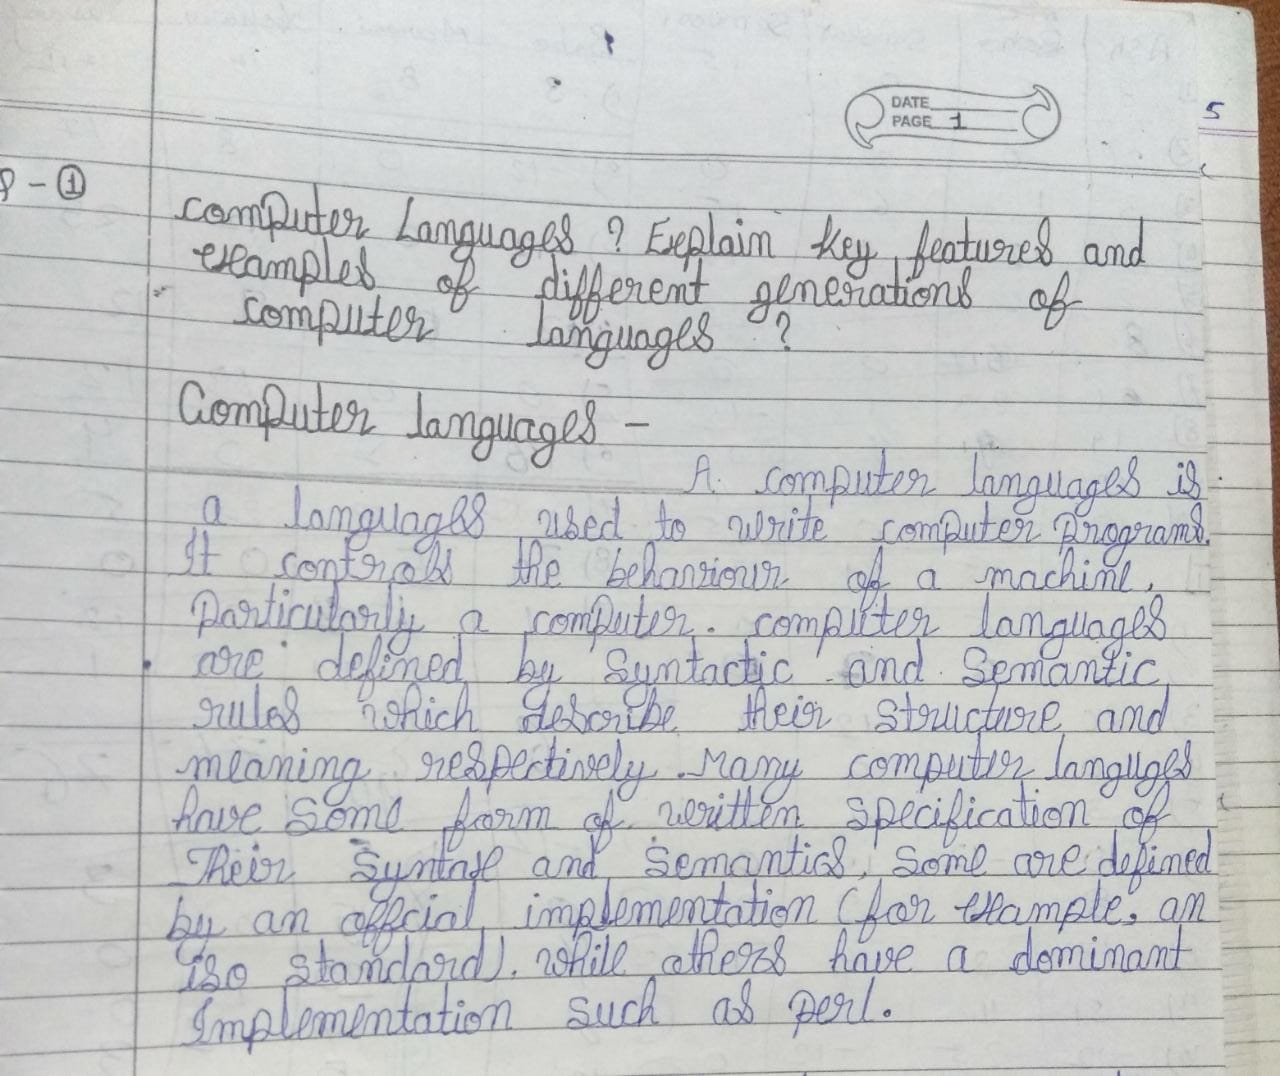 DATE
PAGE 1
5
Q - ①
computer Languages ? Explain key features and
examples of different generations of
computer languages ?
Computer languages -
A. computer languages is
a languages used to write computer programs.
It controls the behaviour of a machine,
particularly a computer. computer languages
are defined by syntactic and semantic
rules which describe their structure and
meaning respectively. Many computer languges
have some form of written specification of
Their syntax and semantics, some are defined
by an offcial implementation (for example, an
iso standard). while others have a dominant
Implementation such as perl.